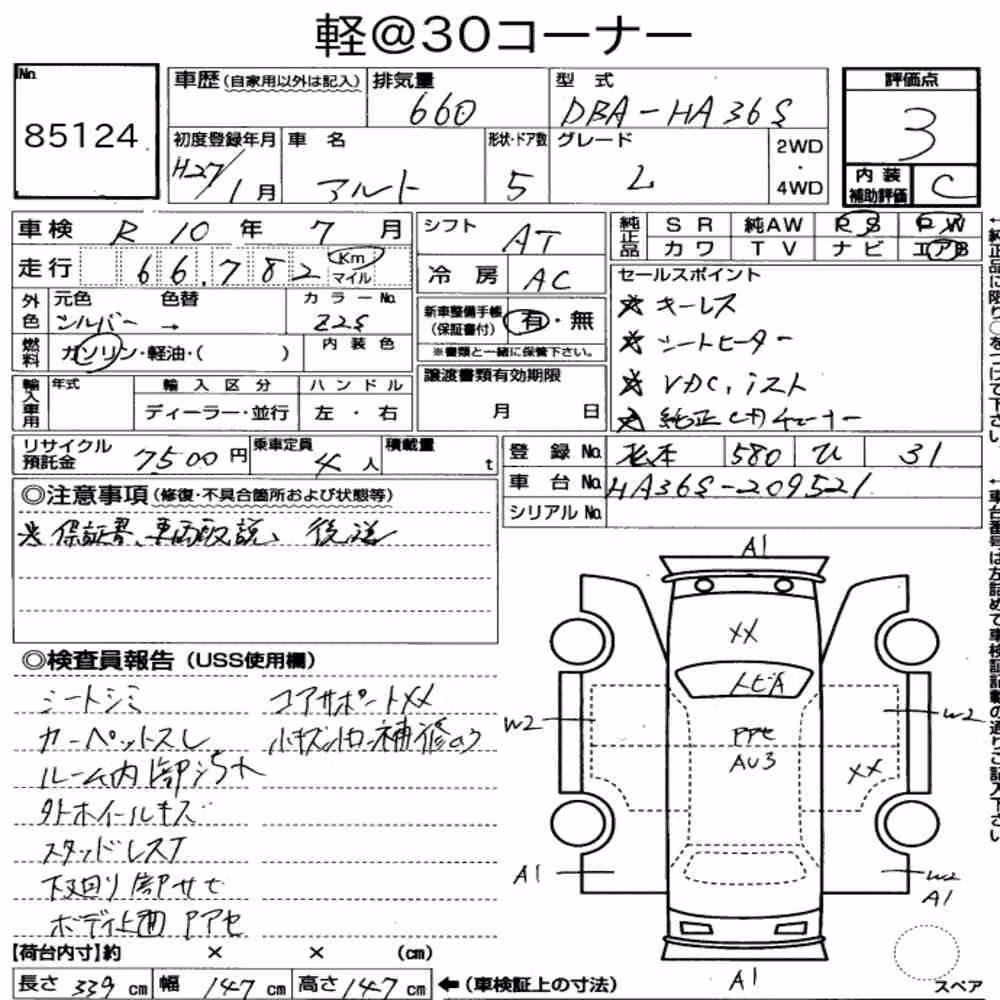 軽@30コーナー
No.
85124
車歴(自家用以外は記入)
排気量
660
型式
DBA-HA36S
評価点
3
内装
補助評価
C
初度登録年月
H27/1月
車名
アルト
形状・ドア数
5
グレード
L
2WD
・
4WD
車検 R 10 年 7 月
走行 66,782 Km マイル
シフト
AT
冷房
AC
純正品
SR 純AW PS PW
カワ TV ナビ エアB
セールスポイント
☆ キーレス
☆ シートヒーター
☆ VDC, iスト
☆ 純正CDチューナー
外色
元色
シルバー →
色替
カラーNo.
Z2S
燃料
ガソリン・軽油・( )
内装色
新車整備手帳
(保証書付)
有・無
※書類と一緒に保管下さい。
輸入車用
年式
輸入区分
ディーラー・並行
ハンドル
左・右
譲渡書類有効期限
月 日
リサイクル
預託金
7500円
乗車定員
4人
積載量
t
登録No.
松本 580 ひ 31
車台No.
HA36S-209521
シリアルNo.
◎注意事項(修復・不具合箇所および状態等)
☆ 保証書、車両取説、後送
◎検査員報告(USS使用欄)
シートシミ
カーペットスレ
ルーム内 内部汚れ
外ホイールキズ
スタッドレスT
下回り部サビ
ボディ上面 Pアセ
コアサポートXX
小キズ、小凹、補修のう
A1
XX
トビA
PPセ
AU3
XX
W2
W2
A1
W2
A1
A1
スペア
【荷台内寸】約 × × (cm)
長さ 339 cm 幅 147 cm 高さ 147 cm ←(車検証上の寸法)
←純正品に限り○をつけて下さい。
←車台番号は左詰めで車検証記載の通りご記入下さい